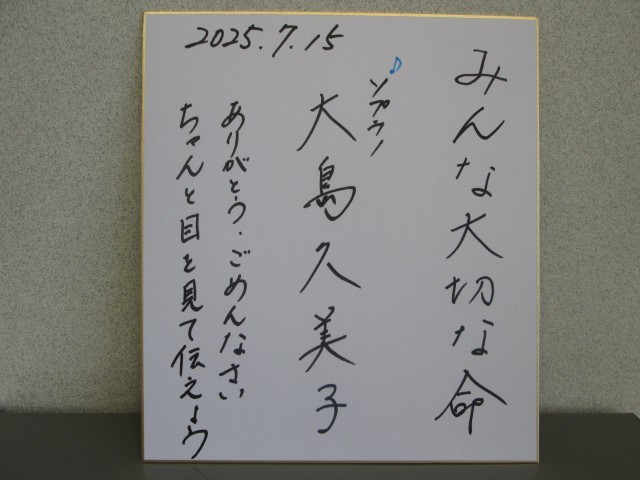 みんな大切な命
♪ソプラノ
大島久美子
ありがとう・ごめんなさい
ちゃんと目を見て伝えよう
2025.7.15